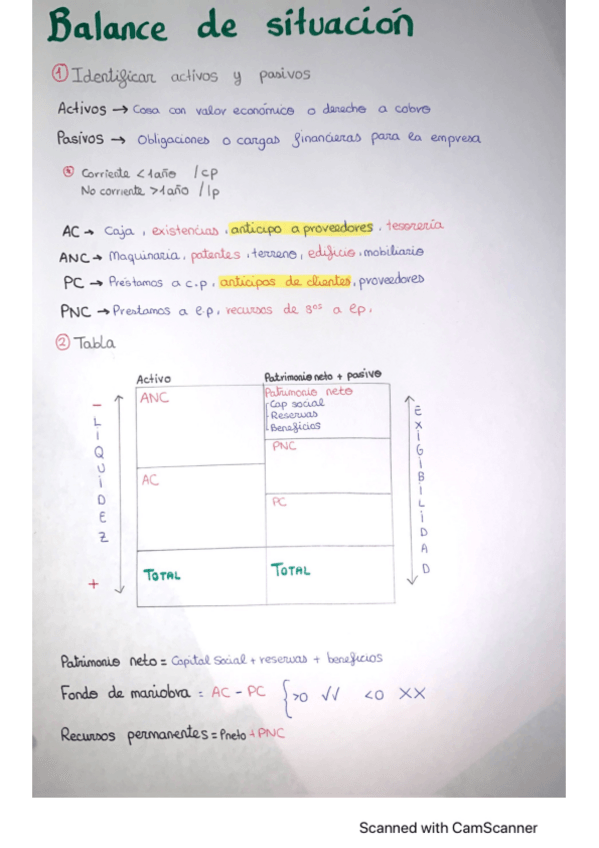 Balance de situación
① Identificar activos y pasivos
Activos → Cosa con valor económico o derecho a cobro
Pasivos → Obligaciones o cargas financieras para la empresa
Corriente < 1 año / cp
No corriente > 1 año / lp
AC → Caja, existencias, anticipo a proveedores, tesorería
ANC → Maquinaria, patentes, terreno, edificio, mobiliario
PC → Préstamos a c.p, anticipos de clientes, proveedores
PNC → Prestamos a l.p, recursos de 3os a lp.
② Tabla
Activo Patrimonio neto + pasivo
ANC
Patrimonio neto
Cap social
Reservas
Beneficios
PNC
AC
PC
TOTAL TOTAL
- LIQUIDEZ +
EXIGIBILIDAD
Patrimonio neto = Capital Social + reservas + beneficios
Fondo de maniobra = AC - PC { >0 √√ <0 XX
Recursos permanentes = Pneto + PNC
Scanned with CamScanner